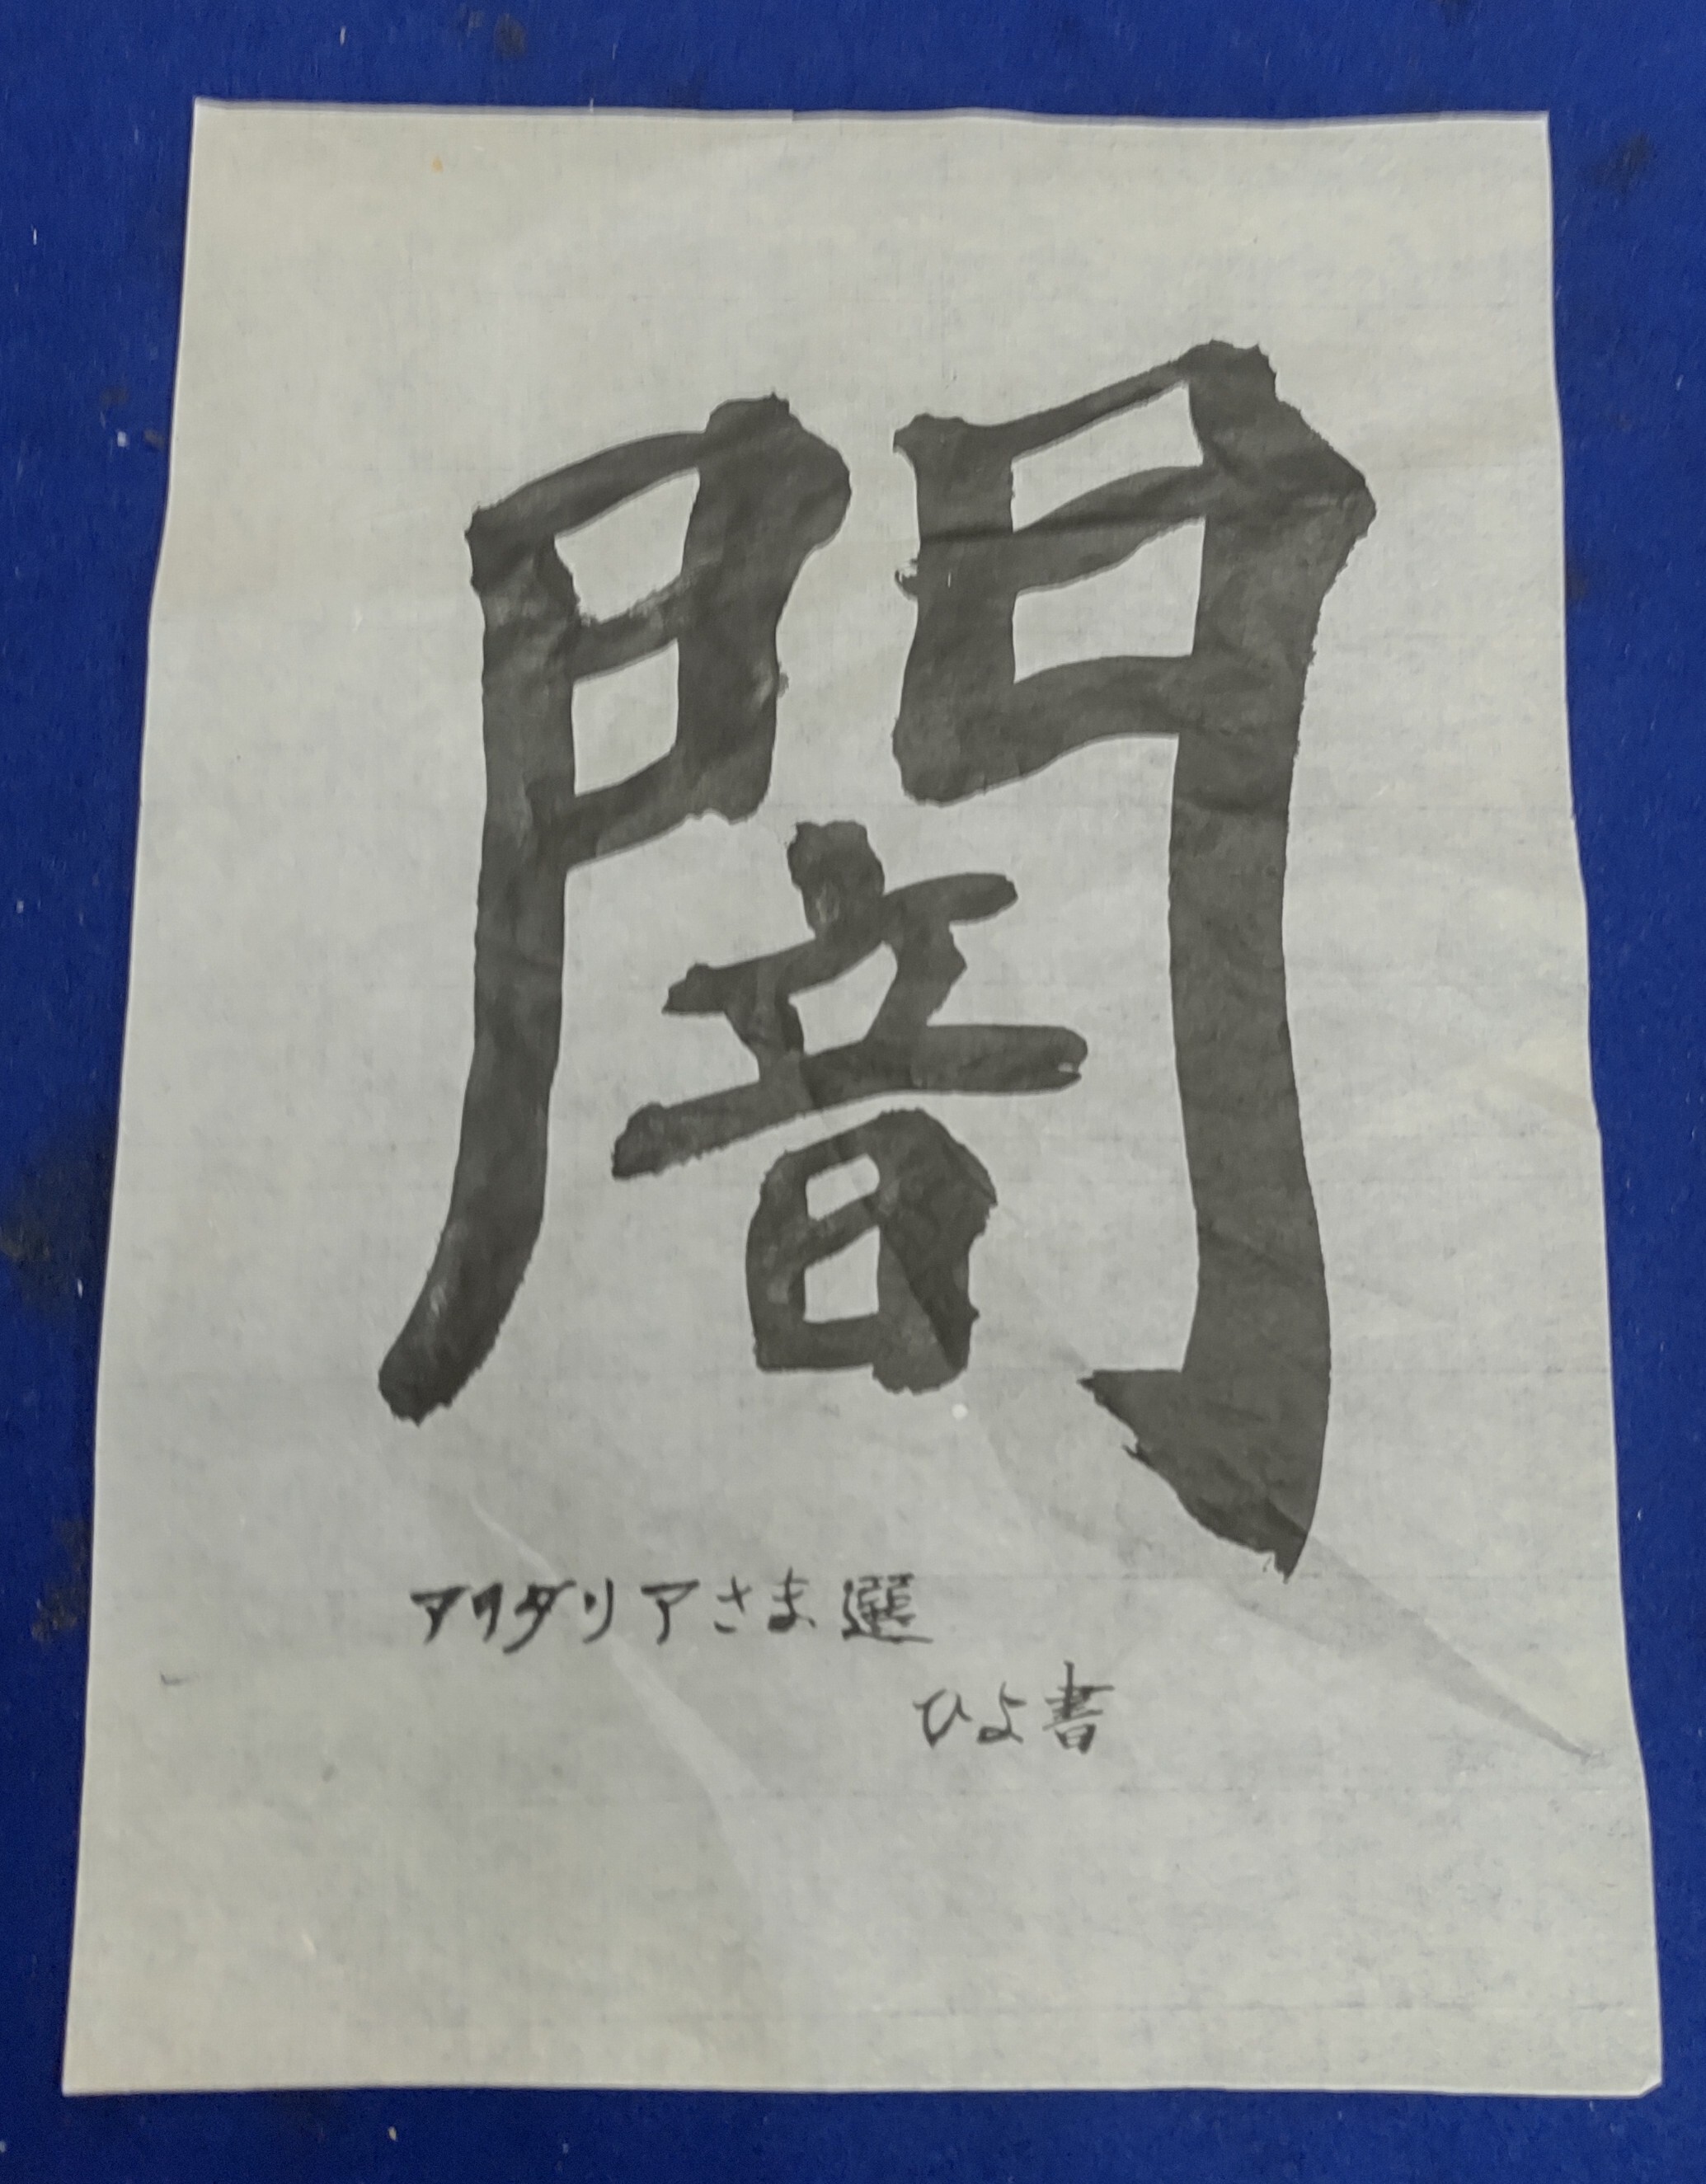 闇
アイダリアさま選
ひよ書